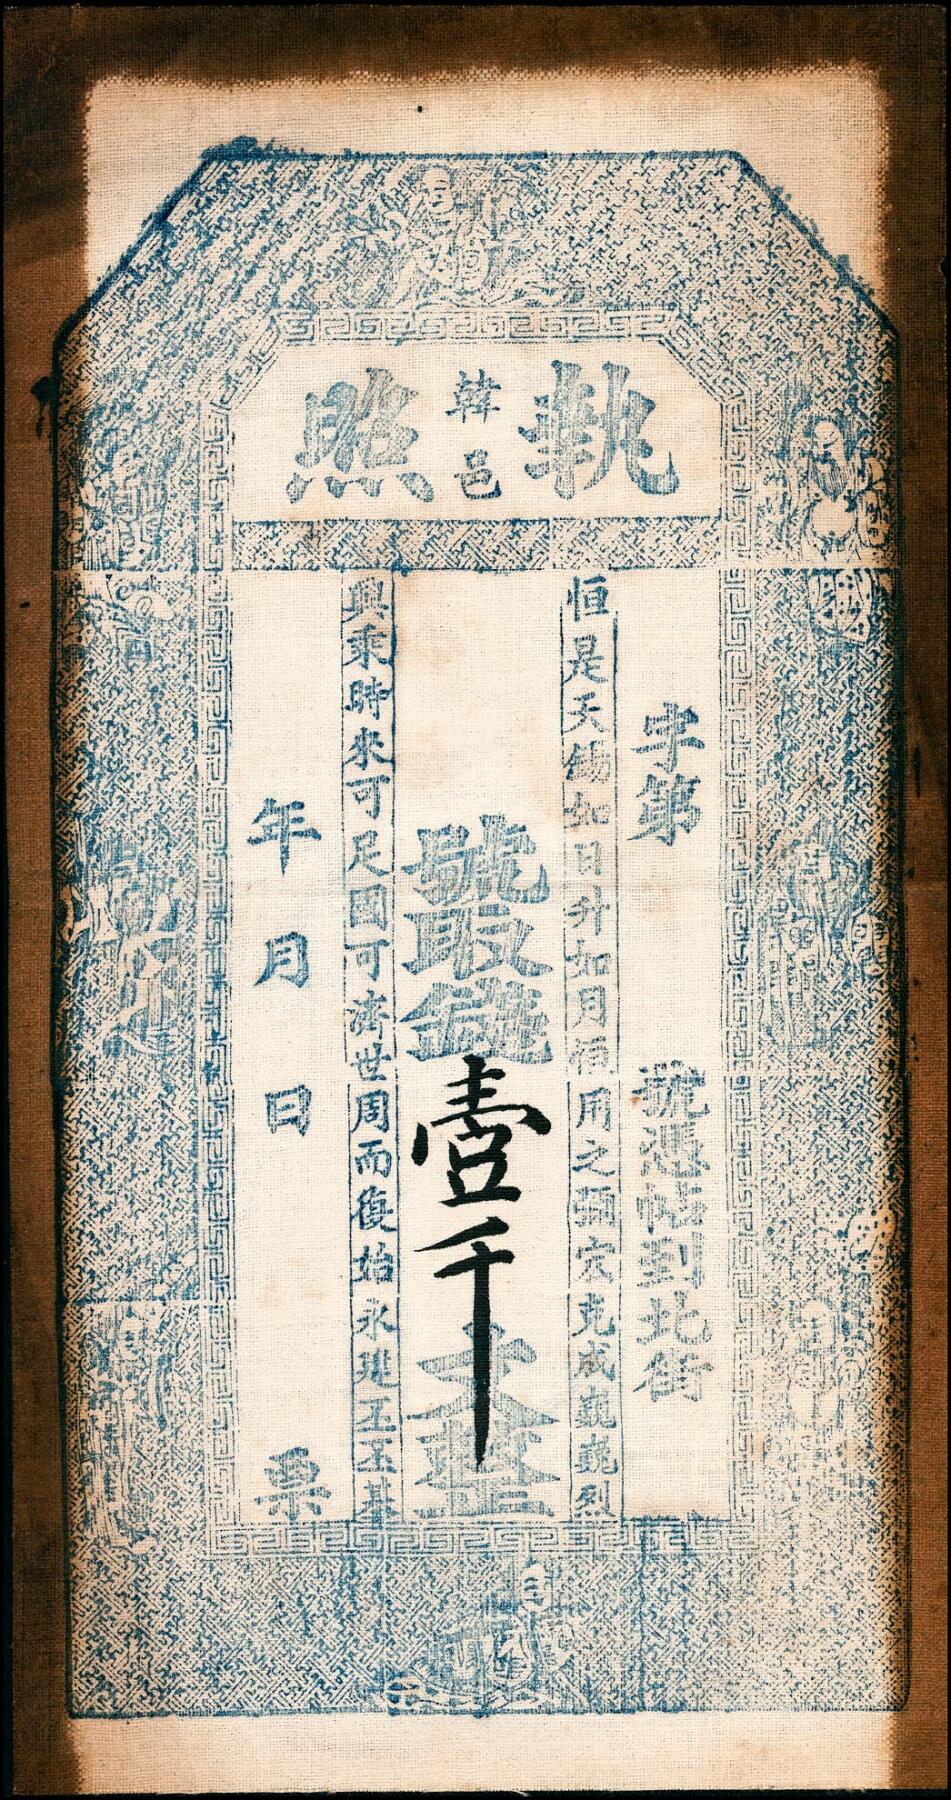 執照
韓邑
字第
號憑帖到北街
恒是天錫如日升如月恒用之須宏克成巍巍烈
號取錢壹千文整
興乘時來可足國可濟世周而復始永建丕丕基
年月日票